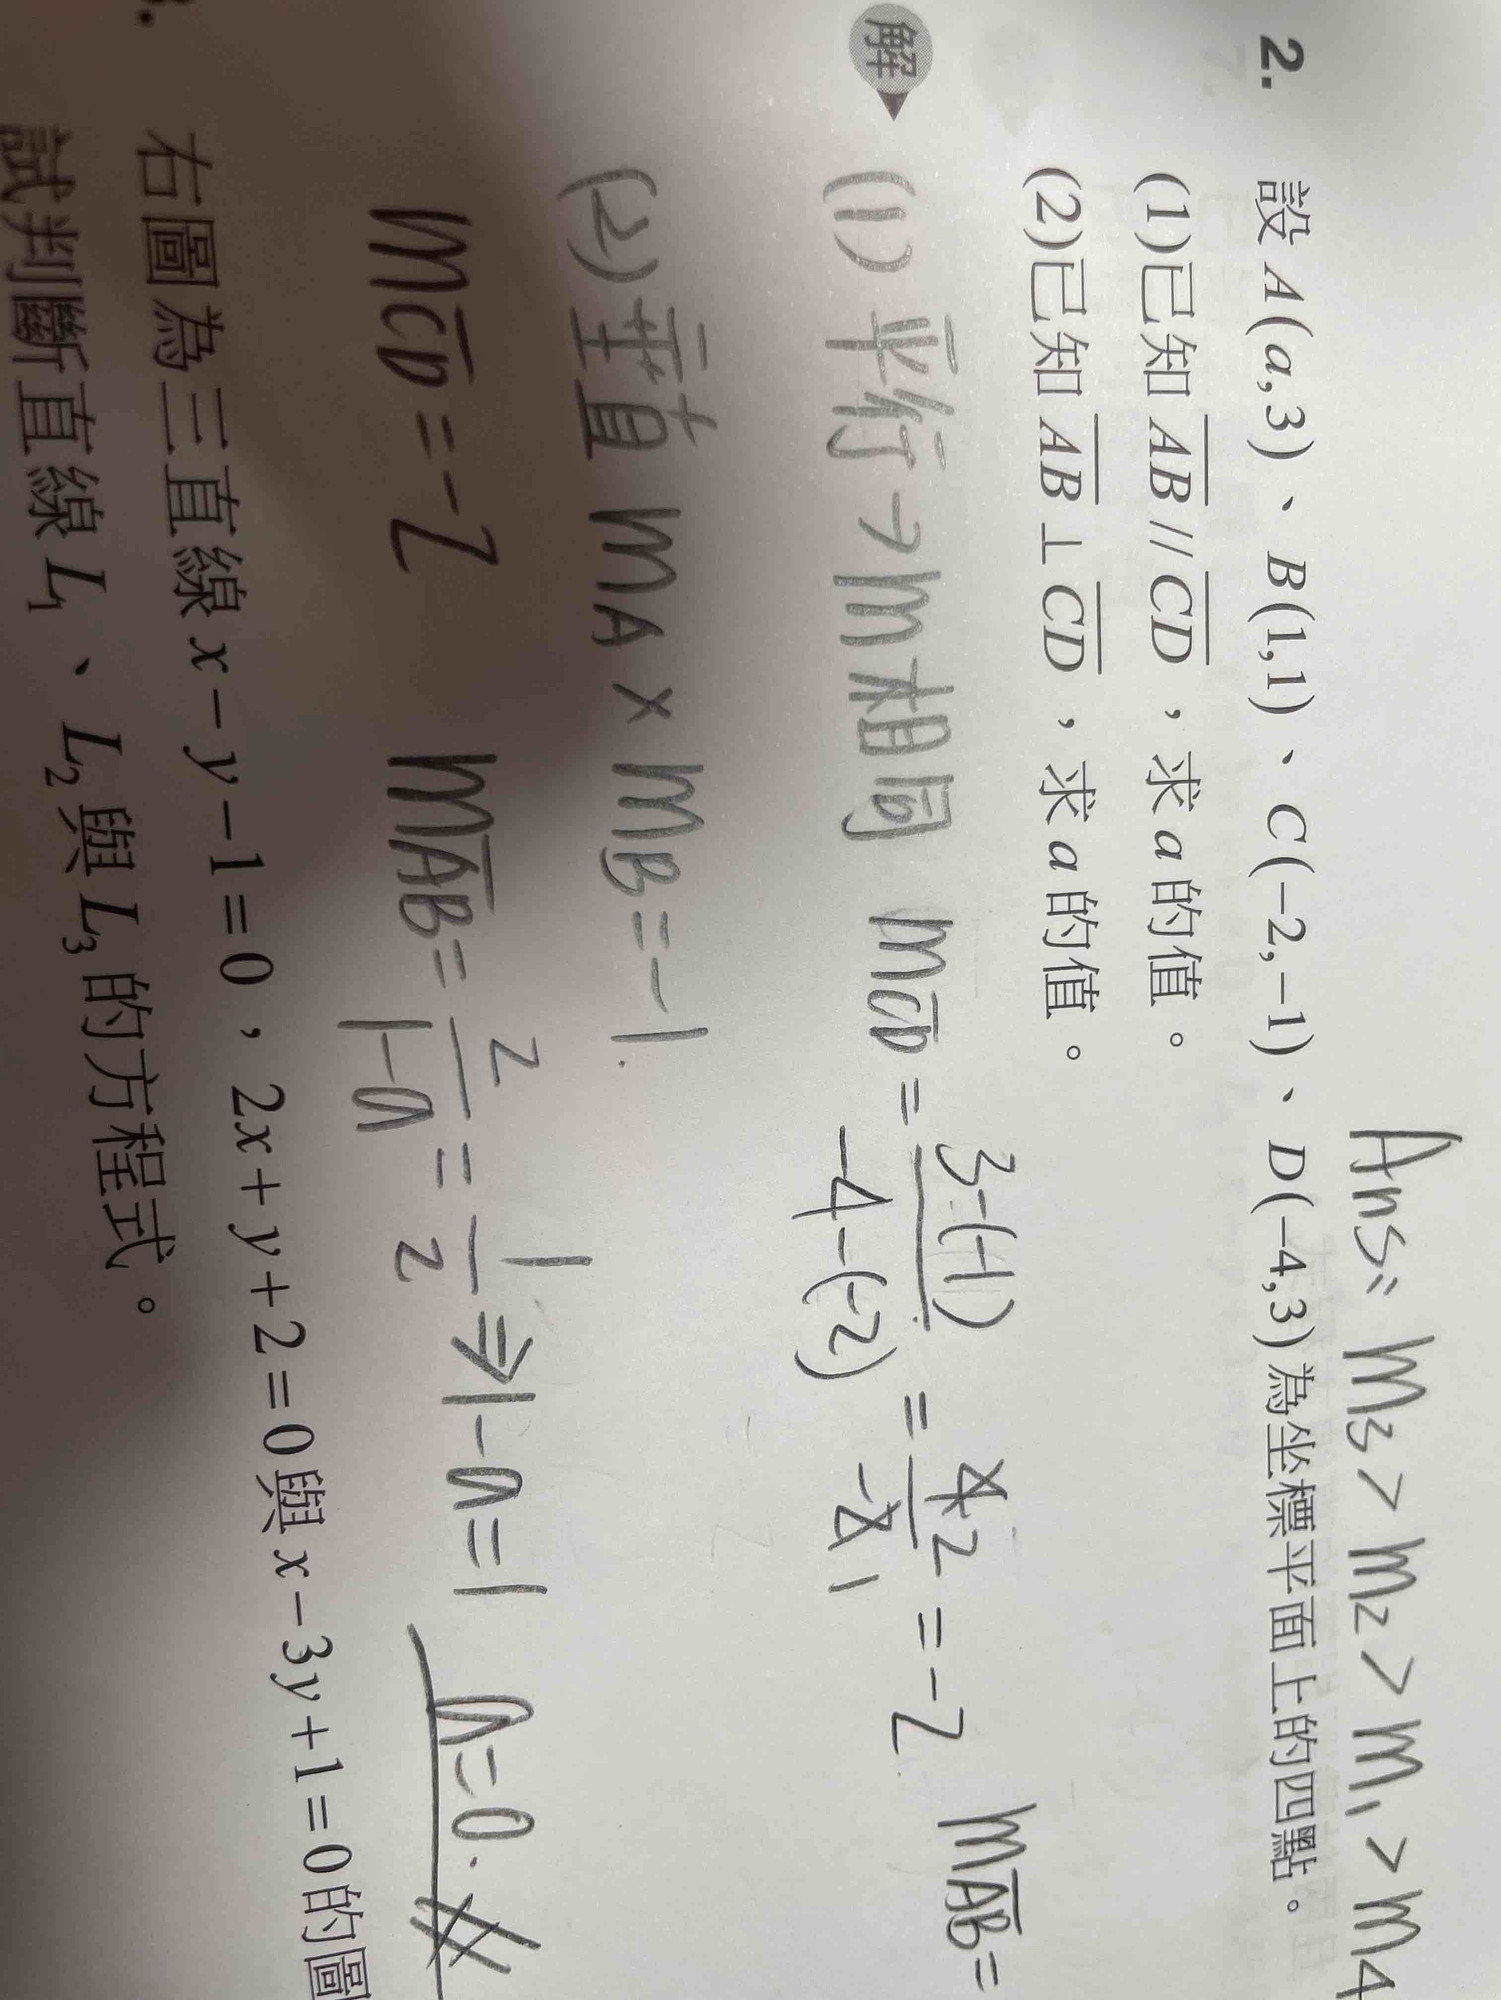 Ans: m₃ > m₂ > m₁ > m₄
2. 設 A(a,3)、B(1,1)、C(−2,−1)、D(−4,3)為坐標平面上的四點。
(1)已知 \overline{AB} // \overline{CD},求 a 的值。
(2)已知 \overline{AB} ⊥ \overline{CD},求 a 的值。
解 (1) 平行→m相同 m\overline{CD} = \frac{3-(-1)}{-4-(-2)} = \frac{4 2}{-2 1} = -2 m\overline{AB} =
(2) 垂直 m_A × m_B = -1.
m\overline{CD} = -2 m\overline{AB} = \frac{2}{1-a} = \frac{1}{2} ⇒ 1-a=1 a=0.
右圖為三直線 x−y−1=0,2x+y+2=0與 x−3y+1=0的圖
試判斷直線 L₁、L₂與 L₃的方程式。